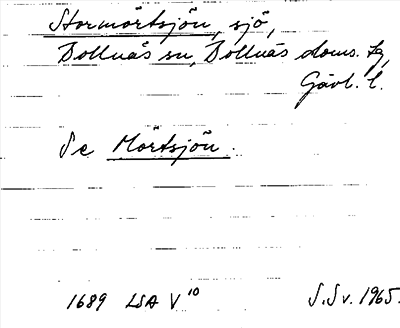 Stormörtsjön, sjö,
Bollnäs sn, Bollnäs doms. tg,
Gävl. l.
Se Mörtsjön.
1689 LSA V 10 S.Sv. 1965.